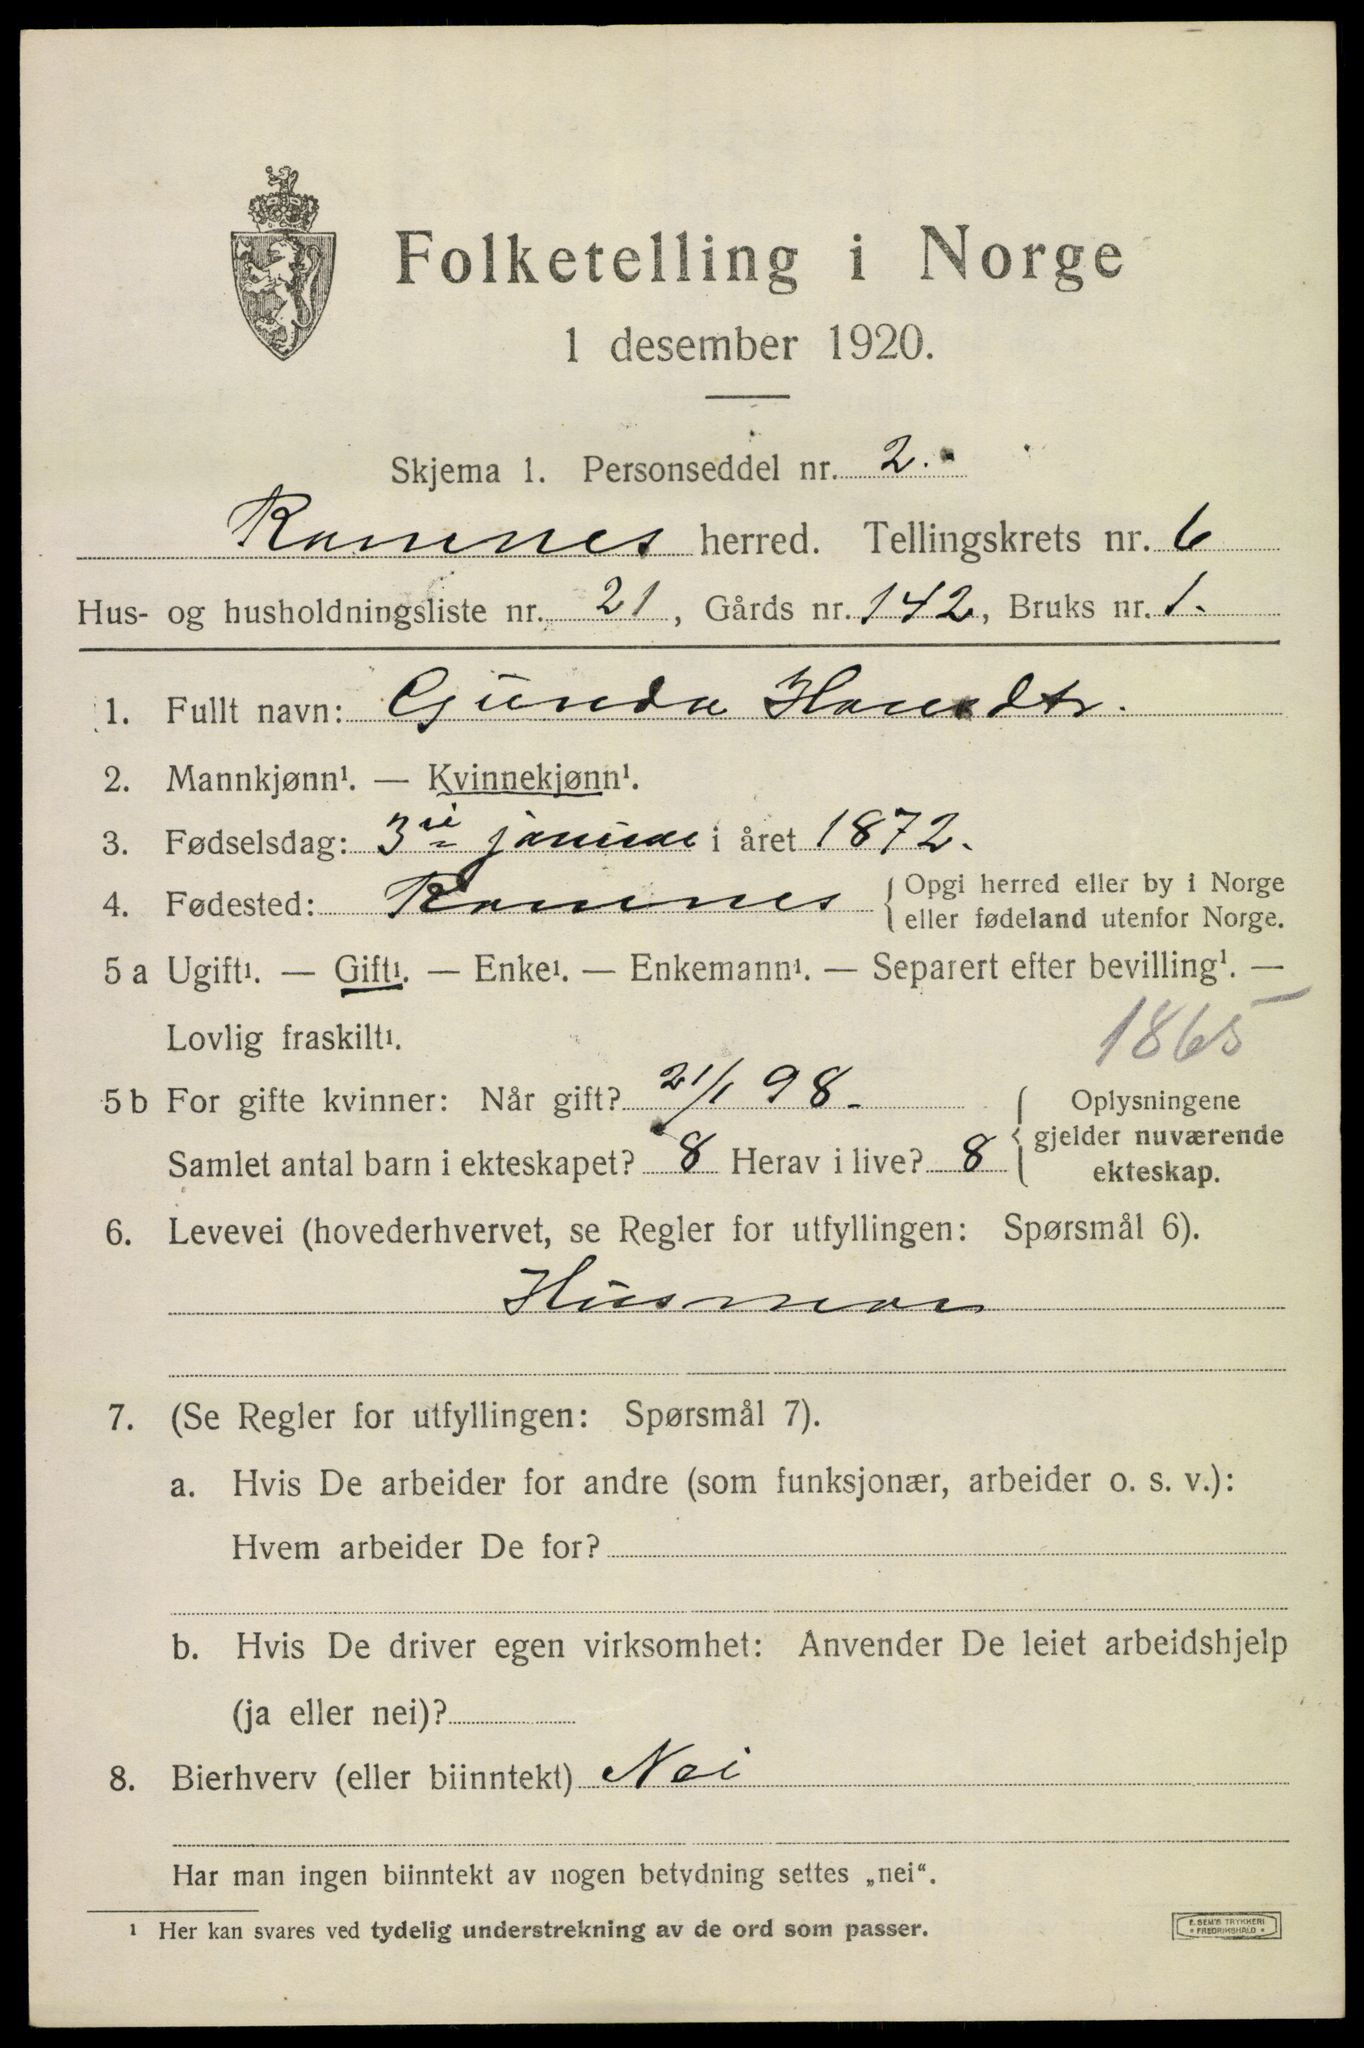 Folketelling i Norge
1 desember 1920.
Skjema 1. Personseddel nr. 2.
Ramnes herred. Tellingskrets nr. 6
Hus- og husholdningsliste nr. 21, Gårds nr. 142, Bruks nr. 1.
1. Fullt navn: Gunda Hansdtr.
2. Mannkjønn¹. — Kvinnekjønn¹.
3. Fødselsdag: 3die januar i året 1872.
4. Fødested: Ramnes { Opgi herred eller by i Norge
eller fødeland utenfor Norge.
5 a Ugift¹. — Gift¹. — Enke¹. — Enkemann¹. — Separert efter bevilling¹. —
Lovlig fraskilt¹.
1865
5 b For gifte kvinner: Når gift? 21/1 98. { Oplysningene
gjelder nuværende
Samlet antal barn i ekteskapet? 8 Herav i live? 8
ekteskap.
6. Levevei (hovederhvervet, se Regler for utfyllingen: Spørsmål 6).
Husmor
7. (Se Regler for utfyllingen: Spørsmål 7).
a. Hvis De arbeider for andre (som funksjonær, arbeider o. s. v.):
Hvem arbeider De for?
b. Hvis De driver egen virksomhet: Anvender De leiet arbeidshjelp
(ja eller nei)?
8. Bierhverv (eller biinntekt) Nei
Har man ingen biinntekt av nogen betydning settes „nei“.
¹ Her kan svares ved tydelig understrekning av de ord som passer.
E. SEM'S TRYKKERI
* FREDRIKSHALD *